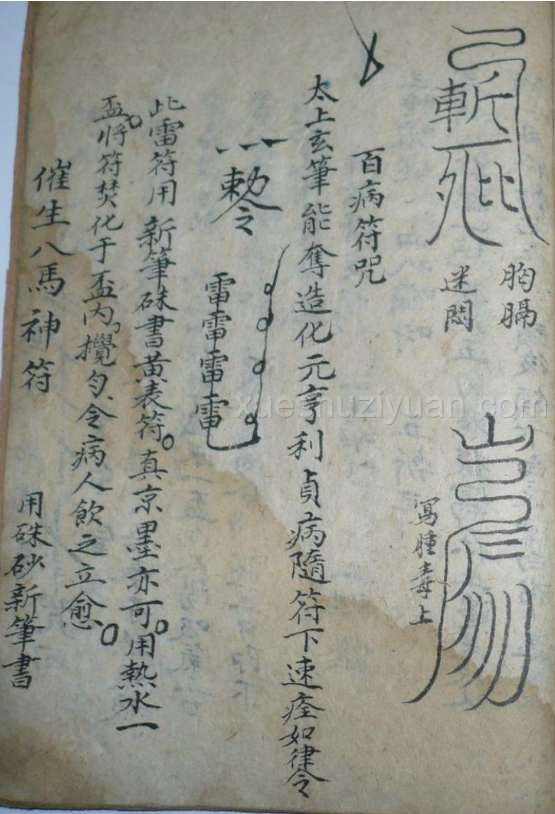 斬
胸膈
迷悶
寫腫毒上
百病符咒
太上玄筆能奪造化元亨利貞病隨符下速痊如律令
敕令
雷雷雷電
此雷符用新筆硃書黃表符。真京墨亦可。用熱水一
盃。將符焚化于盃內、攪勻、令病人飲之立愈。
催生八馬神符
用硃砂新筆書
xueshuziyuan.com